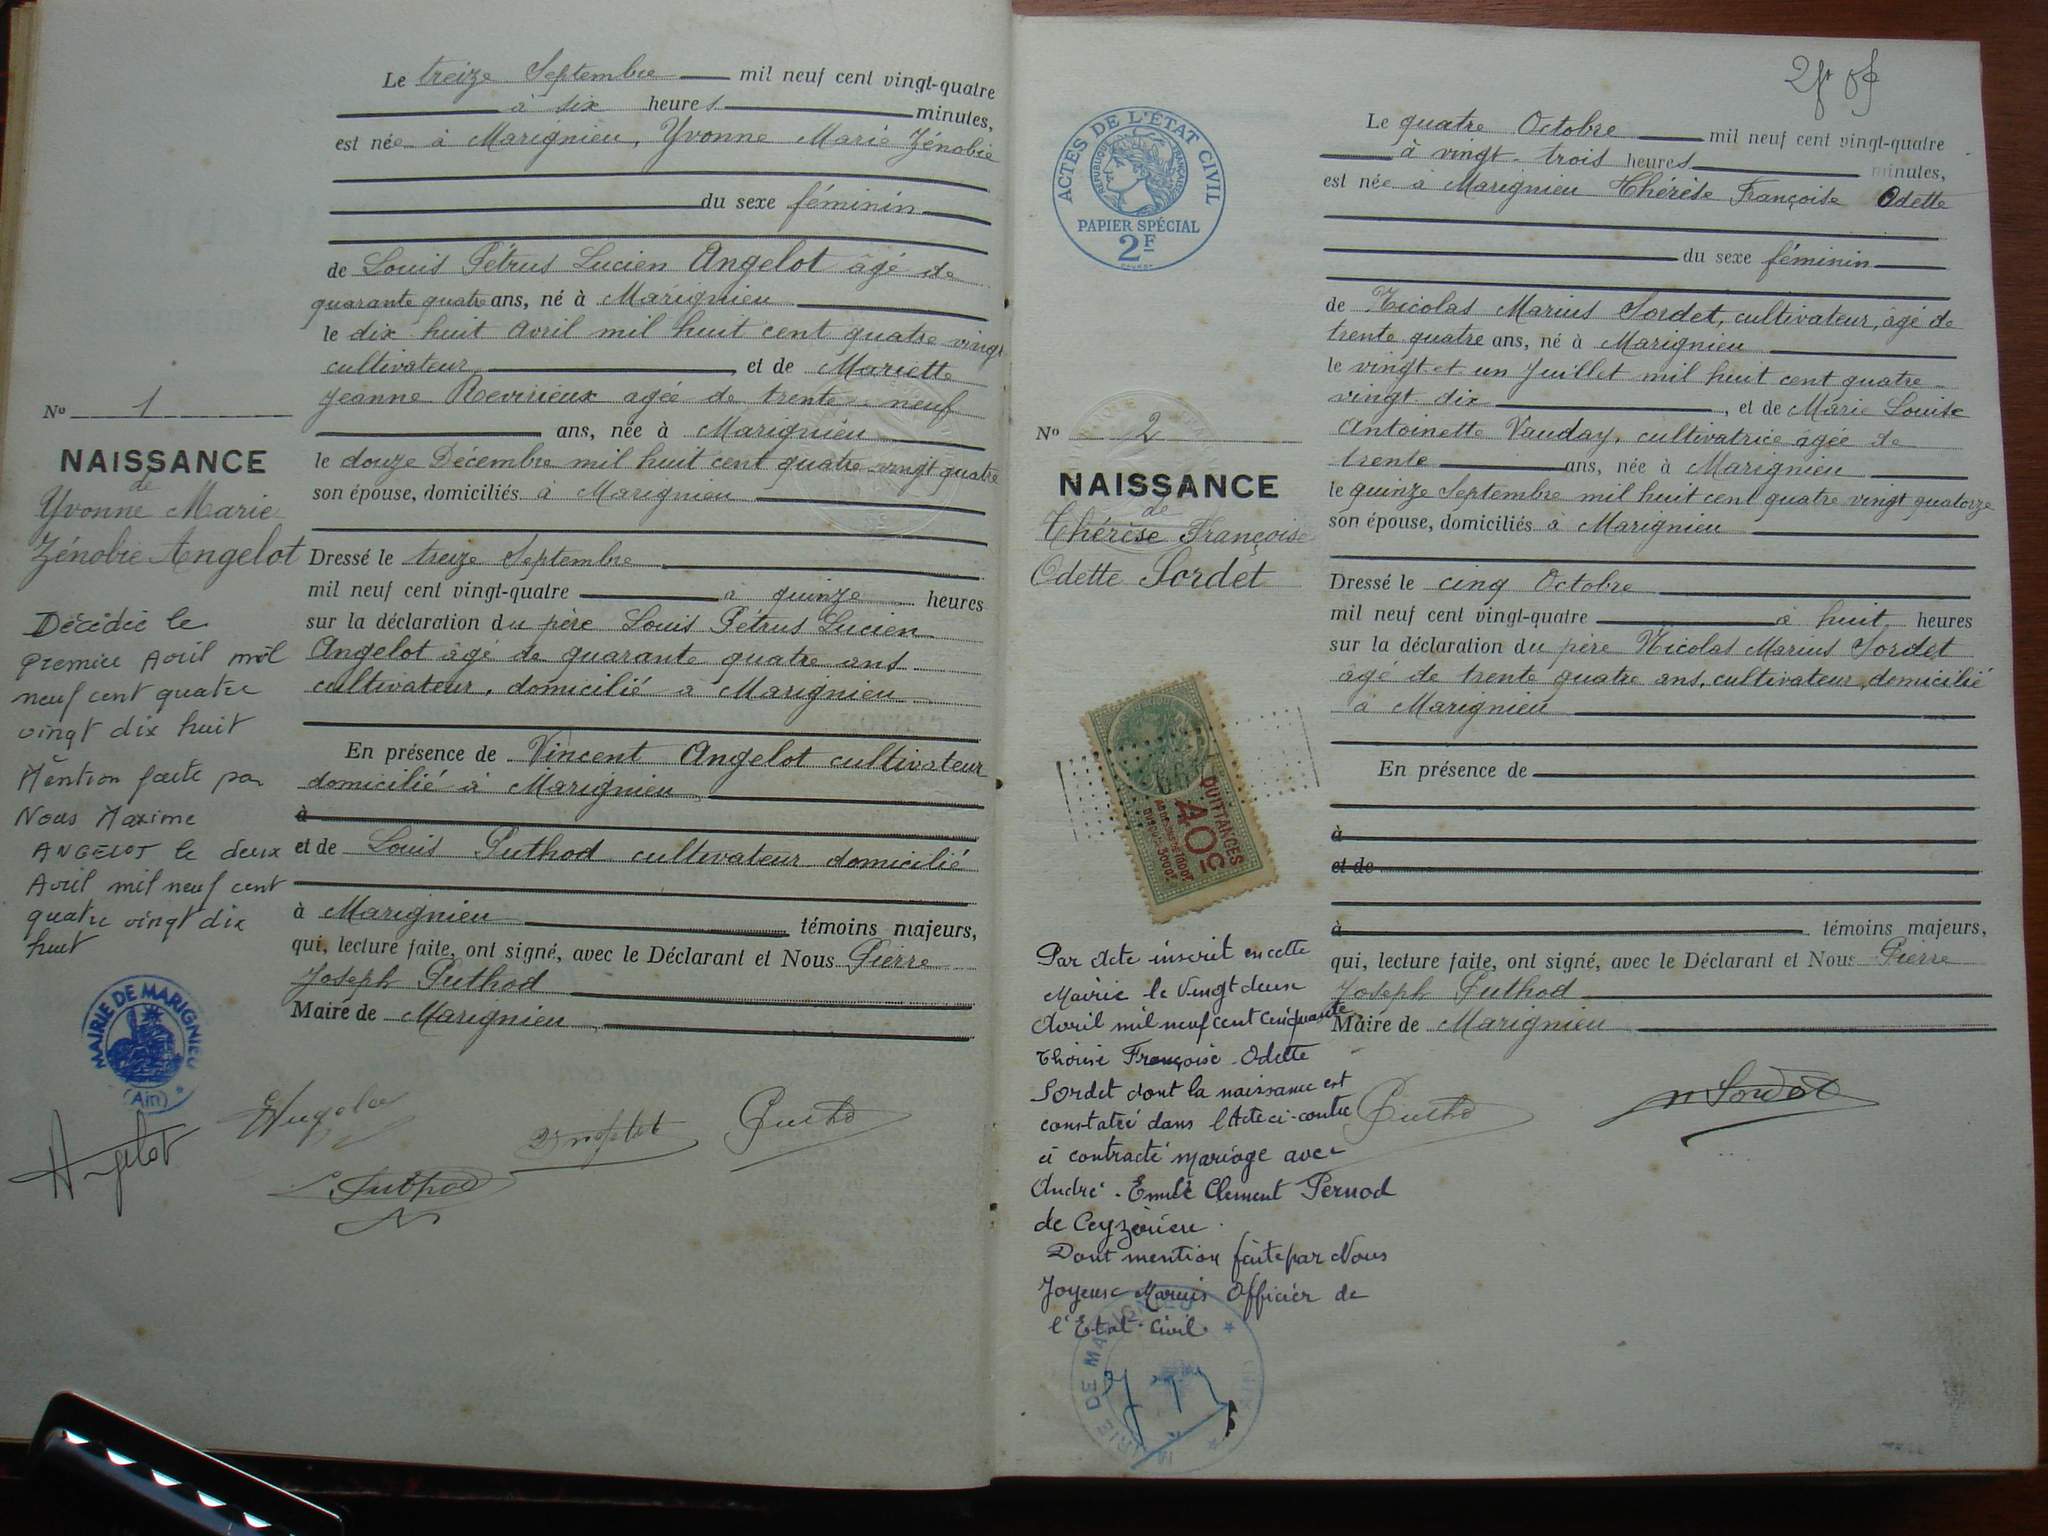 Le treize Septembre mil neuf cent vingt-quatre
à six heures minutes,
est née à Marignieu, Yvonne Marie Zénobie
du sexe féminin
de Louis Pétrus Lucien Angelot âgé de
quarante quatre ans, né à Marignieu
le dix huit Avril mil huit cent quatre vingt
cultivateur, et de Mariette
Jeanne Revirieux agée de trente-neuf
ans, née à Marignieu
le douze Décembre mil huit cent quatre-vingt quatre
son épouse, domiciliés à Marignieu
Dressé le treize Septembre
mil neuf cent vingt-quatre à quinze heures
sur la déclaration du père Louis Pétrus Lucien
Angelot âgé de quarante quatre ans
cultivateur, domicilié à Marignieu
En présence de Vincent Angelot cultivateur
domicilié à Marignieu
à
et de Louis Puthod cultivateur domicilié
à Marignieu témoins majeurs,
qui, lecture faite, ont signé, avec le Déclarant et Nous Pierre
Joseph Puthod
Maire de Marignieu
No 1
NAISSANCE
de
Yvonne Marie
Zénobie Angelot
Décédée le
premier Avril mil
neuf cent quatre
vingt dix huit
Mention faite par
Nous Maxime
ANGELOT le deux
Avril mil neuf cent
quatre vingt dix
huit
MAIRIE DE MARIGNIEU
(Ain)
Angelot
L Puthod
ACTES DE L'ÉTAT CIVIL
RÉPUBLIQUE FRANÇAISE
PAPIER SPÉCIAL
2F
Le quatre Octobre mil neuf cent vingt-quatre
à vingt-trois heures minutes,
est née à Marignieu Thérèse Françoise Odette
du sexe féminin
de Nicolas Marius Sordet, cultivateur, âgé de
trente quatre ans, né à Marignieu
le vingt et un Juillet mil huit cent quatre-
vingt dix, et de Marie Louise
Antoinette Vauday, cultivatrice agée de
trente ans, née à Marignieu
le quinze Septembre mil huit cent quatre vingt quatorze
son épouse, domiciliés à Marignieu
Dressé le cinq Octobre
mil neuf cent vingt-quatre à huit heures
sur la déclaration du père Nicolas Marius Sordet
âgé de trente quatre ans, cultivateur, domicilié
à Marignieu
En présence de
à
et de
à témoins majeurs,
qui, lecture faite, ont signé, avec le Déclarant et Nous Pierre
Joseph Puthod
Maire de Marignieu
N Sordet
No 2
NAISSANCE
de
Thérèse Françoise
Odette Sordet
QUITTANCES
40c
Par Acte inscrit en cette
Mairie le Vingt deux
Avril mil neuf cent cinquante
Thérèse Françoise Odette
Sordet dont la naissance est
constatée dans l'Acte ci-contre
a contracté mariage avec
André-Emile Clement Pernod
de Ceyzérieu.
Dont mention faite par Nous
Joyeux Marius Officier de
l'Etat-Civil
MAIRIE DE MARIGNIEU